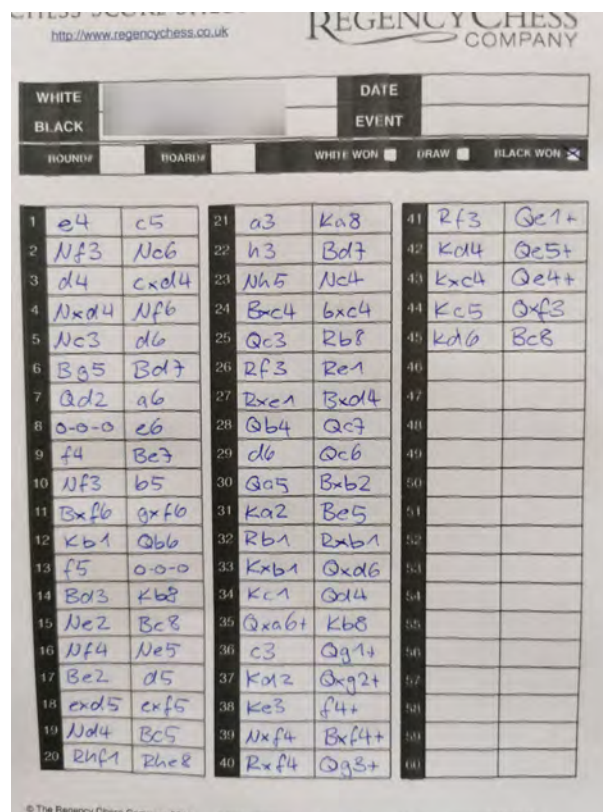 CHESS SCORE SHEET
http://www.regencychess.co.uk
REGENCY CHESS
COMPANY
WHITE DATE
BLACK EVENT
ROUND# BOARD# WHITE WON DRAW BLACK WON
1 e4 c5
2 Nf3 Nc6
3 d4 cxd4
4 Nxd4 Nf6
5 Nc3 d6
6 Bg5 Bd7
7 Qd2 a6
8 0-0-0 e6
9 f4 Be7
10 Nf3 b5
11 Bxf6 gxf6
12 Kb1 Qb6
13 f5 0-0-0
14 Bd3 Kb8
15 Ne2 Bc8
16 Nf4 Ne5
17 Be2 d5
18 exd5 exf5
19 Nd4 Bc5
20 Rhf1 Rhe8
21 a3 Ka8
22 h3 Bd7
23 Nh5 Nc4
24 Bxc4 bxc4
25 Qc3 Rb8
26 Rf3 Re1
27 Rxe1 Bxd4
28 Qb4 Qc7
29 d6 Qc6
30 Qa5 Bxb2
31 Ka2 Be5
32 Rb1 Rxb1
33 Kxb1 Qxd6
34 Kc1 Qd4
35 Qxa6+ Kb8
36 c3 Qg1+
37 Kd2 Qxg2+
38 Ke3 f4+
39 Nxf4 Bxf4+
40 Rxf4 Qg3+
41 Rf3 Qe1+
42 Kd4 Qe5+
43 Kxc4 Qe4+
44 Kc5 Qxf3
45 Kd6 Bc8
46
47
48
49
50
51
52
53
54
55
56
57
58
59
60
© The Regency Chess